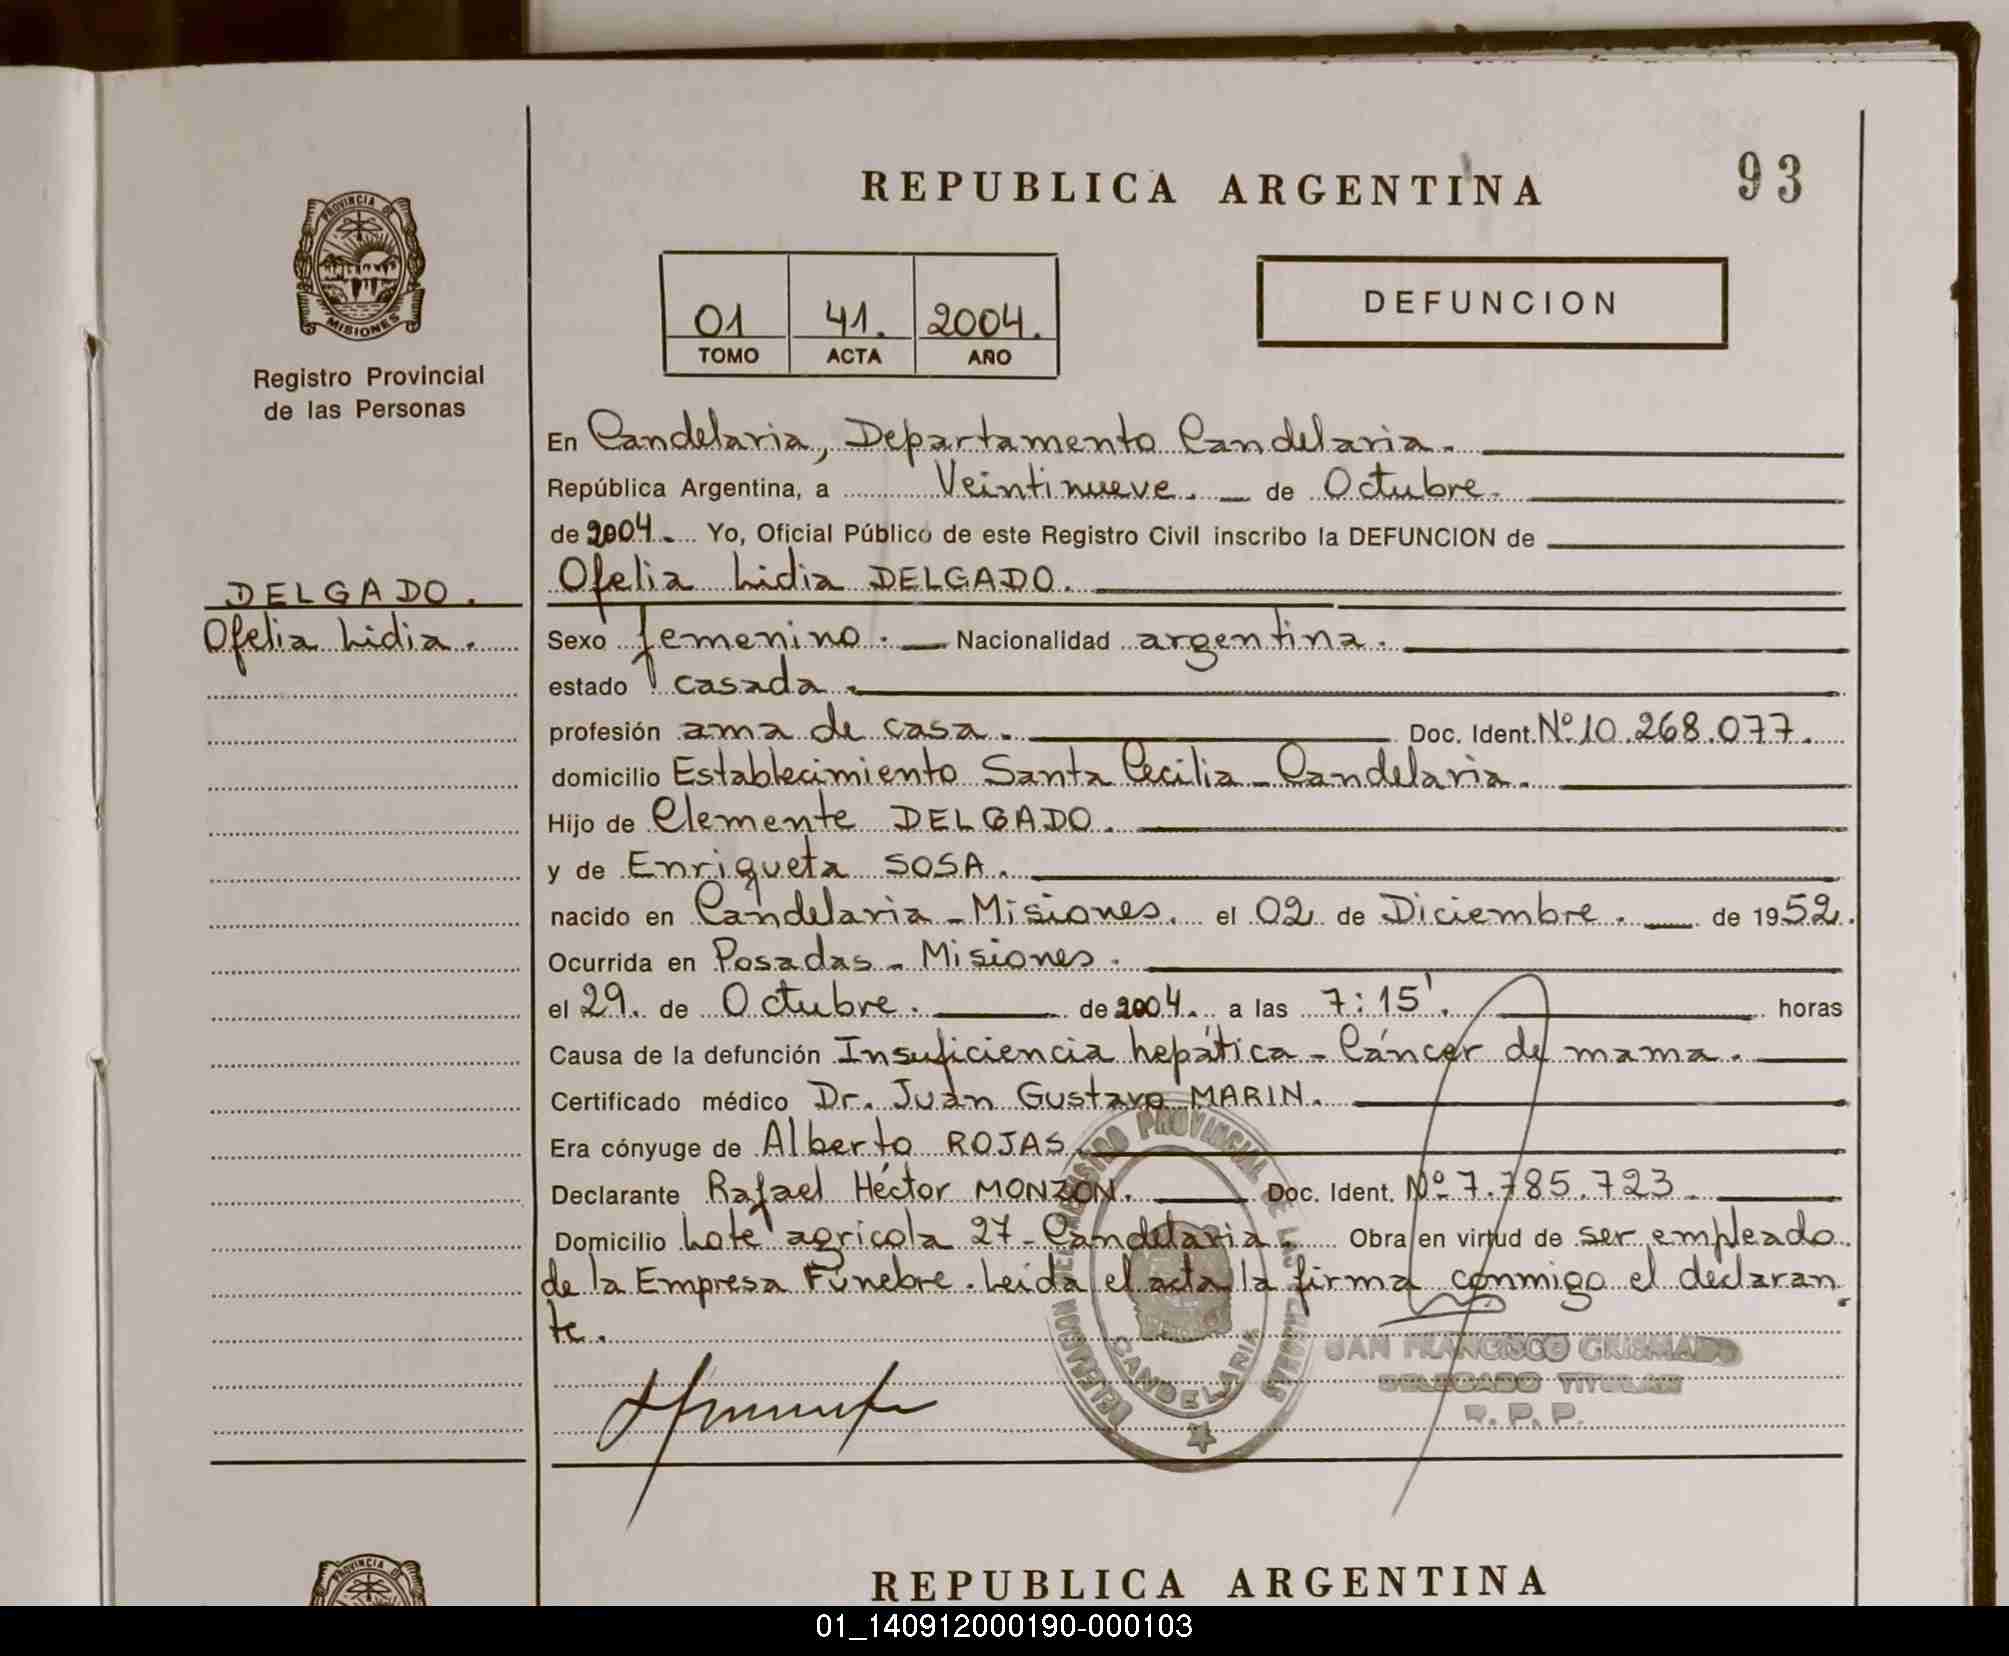 REPUBLICA ARGENTINA
93
PROVINCIA DE
MISIONES
Registro Provincial
de las Personas
01 41. 2004.
TOMO ACTA AÑO
DEFUNCION
En Candelaria, Departamento Candelaria.
República Argentina, a Veintinueve. de Octubre.
de 2004. Yo, Oficial Público de este Registro Civil inscribo la DEFUNCION de
Ofelia Lidia DELGADO.
DELGADO.
Ofelia Lidia.
Sexo femenino. Nacionalidad argentina.
estado casada.
profesión ama de casa. Doc. Ident. Nº 10.268.077.
domicilio Establecimiento Santa Cecilia - Candelaria.
Hijo de Clemente DELGADO.
y de Enriqueta SOSA.
nacido en Candelaria - Misiones. el 02 de Diciembre. de 1952.
Ocurrida en Posadas - Misiones.
el 29. de Octubre. de 2004. a las 7:15'. horas
Causa de la defunción Insuficiencia hepática - Cáncer de mama.
Certificado médico Dr. Juan Gustavo MARIN.
Era cónyuge de Alberto ROJAS.
Declarante Rafael Héctor MONZON. Doc. Ident. Nº 7.785.723
Domicilio Lote agrícola 27 - Candelaria. Obra en virtud de ser empleado
de la Empresa Fúnebre. Leída el acta la firma conmigo el declaran
te.
DELEGACION DEL REGISTRO PROVINCIAL DE LAS PERSONAS
CANDELARIA
JUAN FRANCISCO GRISMADO
DELEGADO TITULAR
R. P. P.
PROVINCIA
REPUBLICA ARGENTINA
01_140912000190-000103